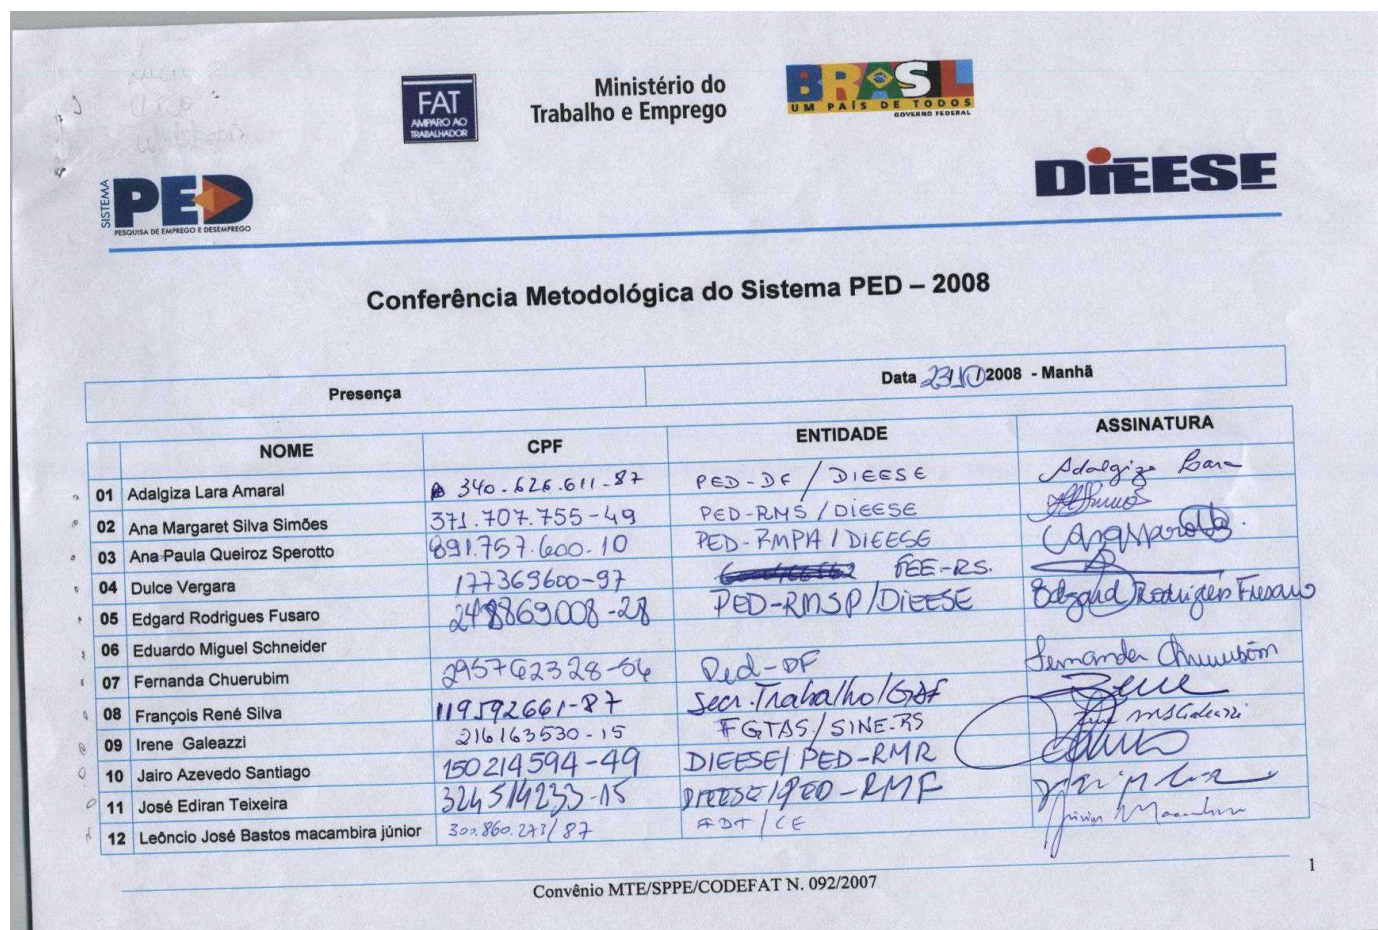 FAT
AMPARO AO
TRABALHADOR
Ministério do
Trabalho e Emprego
BRASIL
UM PAÍS DE TODOS
GOVERNO FEDERAL
SISTEMA
PED
PESQUISA DE EMPREGO E DESEMPREGO
DIEESE
Conferência Metodológica do Sistema PED – 2008
Presença Data 23/10/2008 - Manhã
NOME CPF ENTIDADE ASSINATURA
01 Adalgiza Lara Amaral 340.626.611-87 PED-DF / DIEESE Adalgiza Lara
02 Ana Margaret Silva Simões 371.707.755-49 PED-RMS / DIEESE
03 Ana Paula Queiroz Sperotto 891.757.600-10 PED-RMPA / DIEESE
04 Dulce Vergara 177369600-97 FEE-RS.
05 Edgard Rodrigues Fusaro 248869008-28 PED-RMSP/DIEESE Edgard Rodrigues Fusaro
06 Eduardo Miguel Schneider
07 Fernanda Chuerubim 295762328-56 Ped-DF Fernanda Chuerubim
08 François René Silva 119592661-87 Secr. Trabalho/GDF
09 Irene Galeazzi 216163530-15 FGTAS/SINE-RS
10 Jairo Azevedo Santiago 150214594-49 DIEESE/PED-RMR
11 José Ediran Teixeira 324514233-15 DIEESE/PED-RMF
12 Leôncio José Bastos macambira júnior 300.860.273/87 IDT/CE Júnior Macambira
Convênio MTE/SPPE/CODEFAT N. 092/2007
1